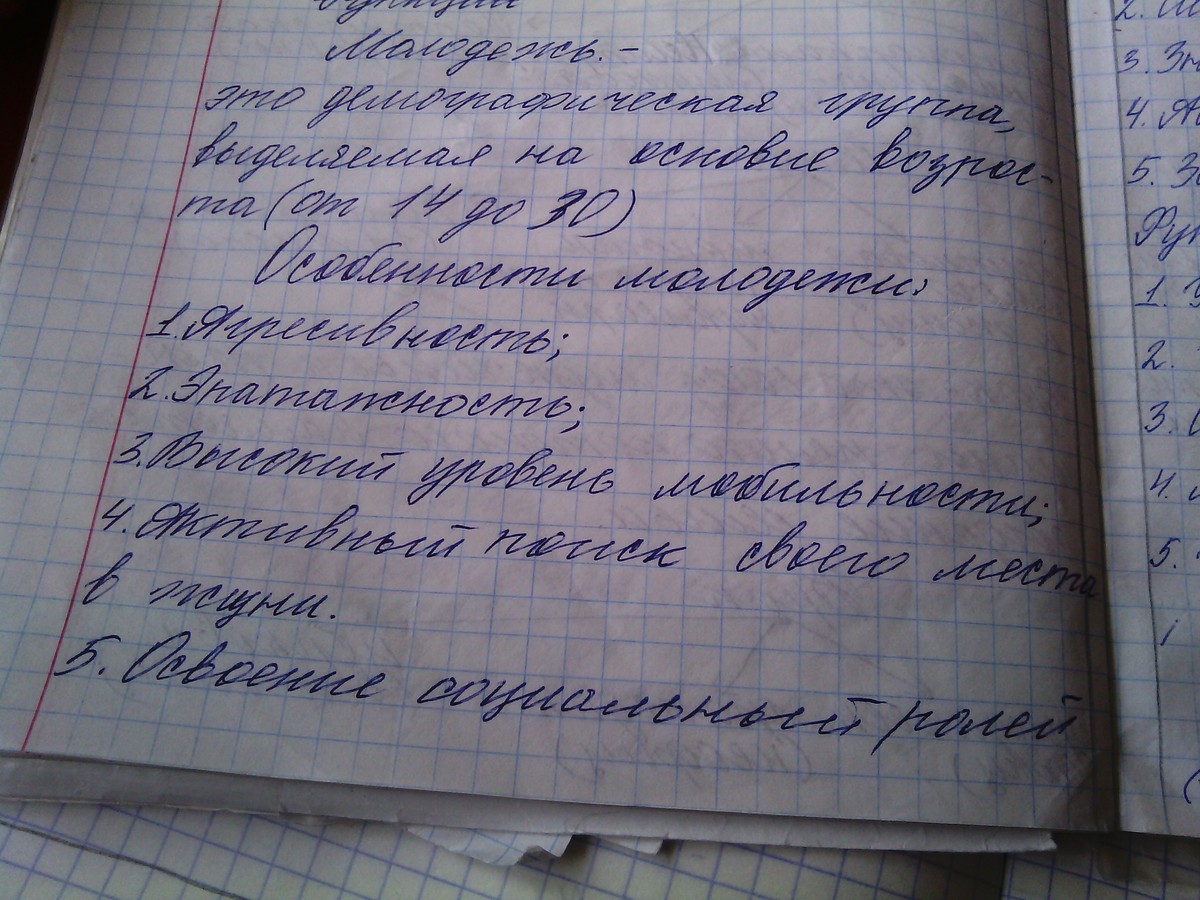 функции
Молодежь. -
это демографическая группа,
выделяемая на основие возрас-
та (от 14 до 30)
Особенности молодежи:
1. Агресивность;
2. Эпатажность;
3. Высокий уровень мобильности;
4. Активный поиск своего места
в жизни.
5. Освоение социальный ролей
2.
3.
4.
5.
1.
2.
3.
4.
5.